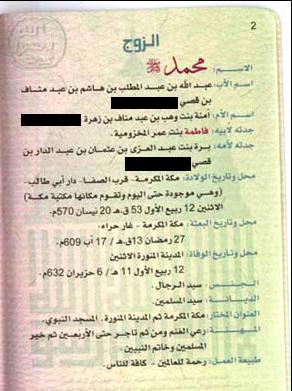 2
الزوج
الاسم: محمد ﷺ
اسم الأب: عبد الله بن عبد المطلب بن هاشم بن عبد مناف
بن قصي
اسم الأم: آمنة بنت وهب بن عبد مناف بن زهرة
جدته لأبيه: فاطمة بنت عمر المخزومية.
جدته لأمه: برة بنت عبد العزى بن عثمان بن عبد الدار بن
قصي
محل وتاريخ الولادة: مكة المكرمة - قرب الصفا - دار أبي طالب-
(وهي موجودة حتى اليوم وتقوم مكانها مكتبة مكة)
الاثنين 12 ربيع الأول 53 ق.هـ 20 نيسان 570م.
محل وتاريخ البعثة: مكة المكرمة - غار حراء.
27 رمضان 13ق.هـ / 17 آب 609م.
محل وتاريخ الوفاة: المدينة المنورة الاثنين
12 ربيع الأول 11 هـ / 6 حزيران 632م.
الجنس: سيد الرجال.
الديانة: سيد المسلمين.
العنوان المختار: مكة المكرمة ثم المدينة المنورة. المسجد النبوي.
المهنة: رعي الغنم ومن ثم تاجر حتى الأربعين ثم خير
المسلمين وخاتم النبيين
طبيعة العمل: رحمة للعالمين - كافة للناس.